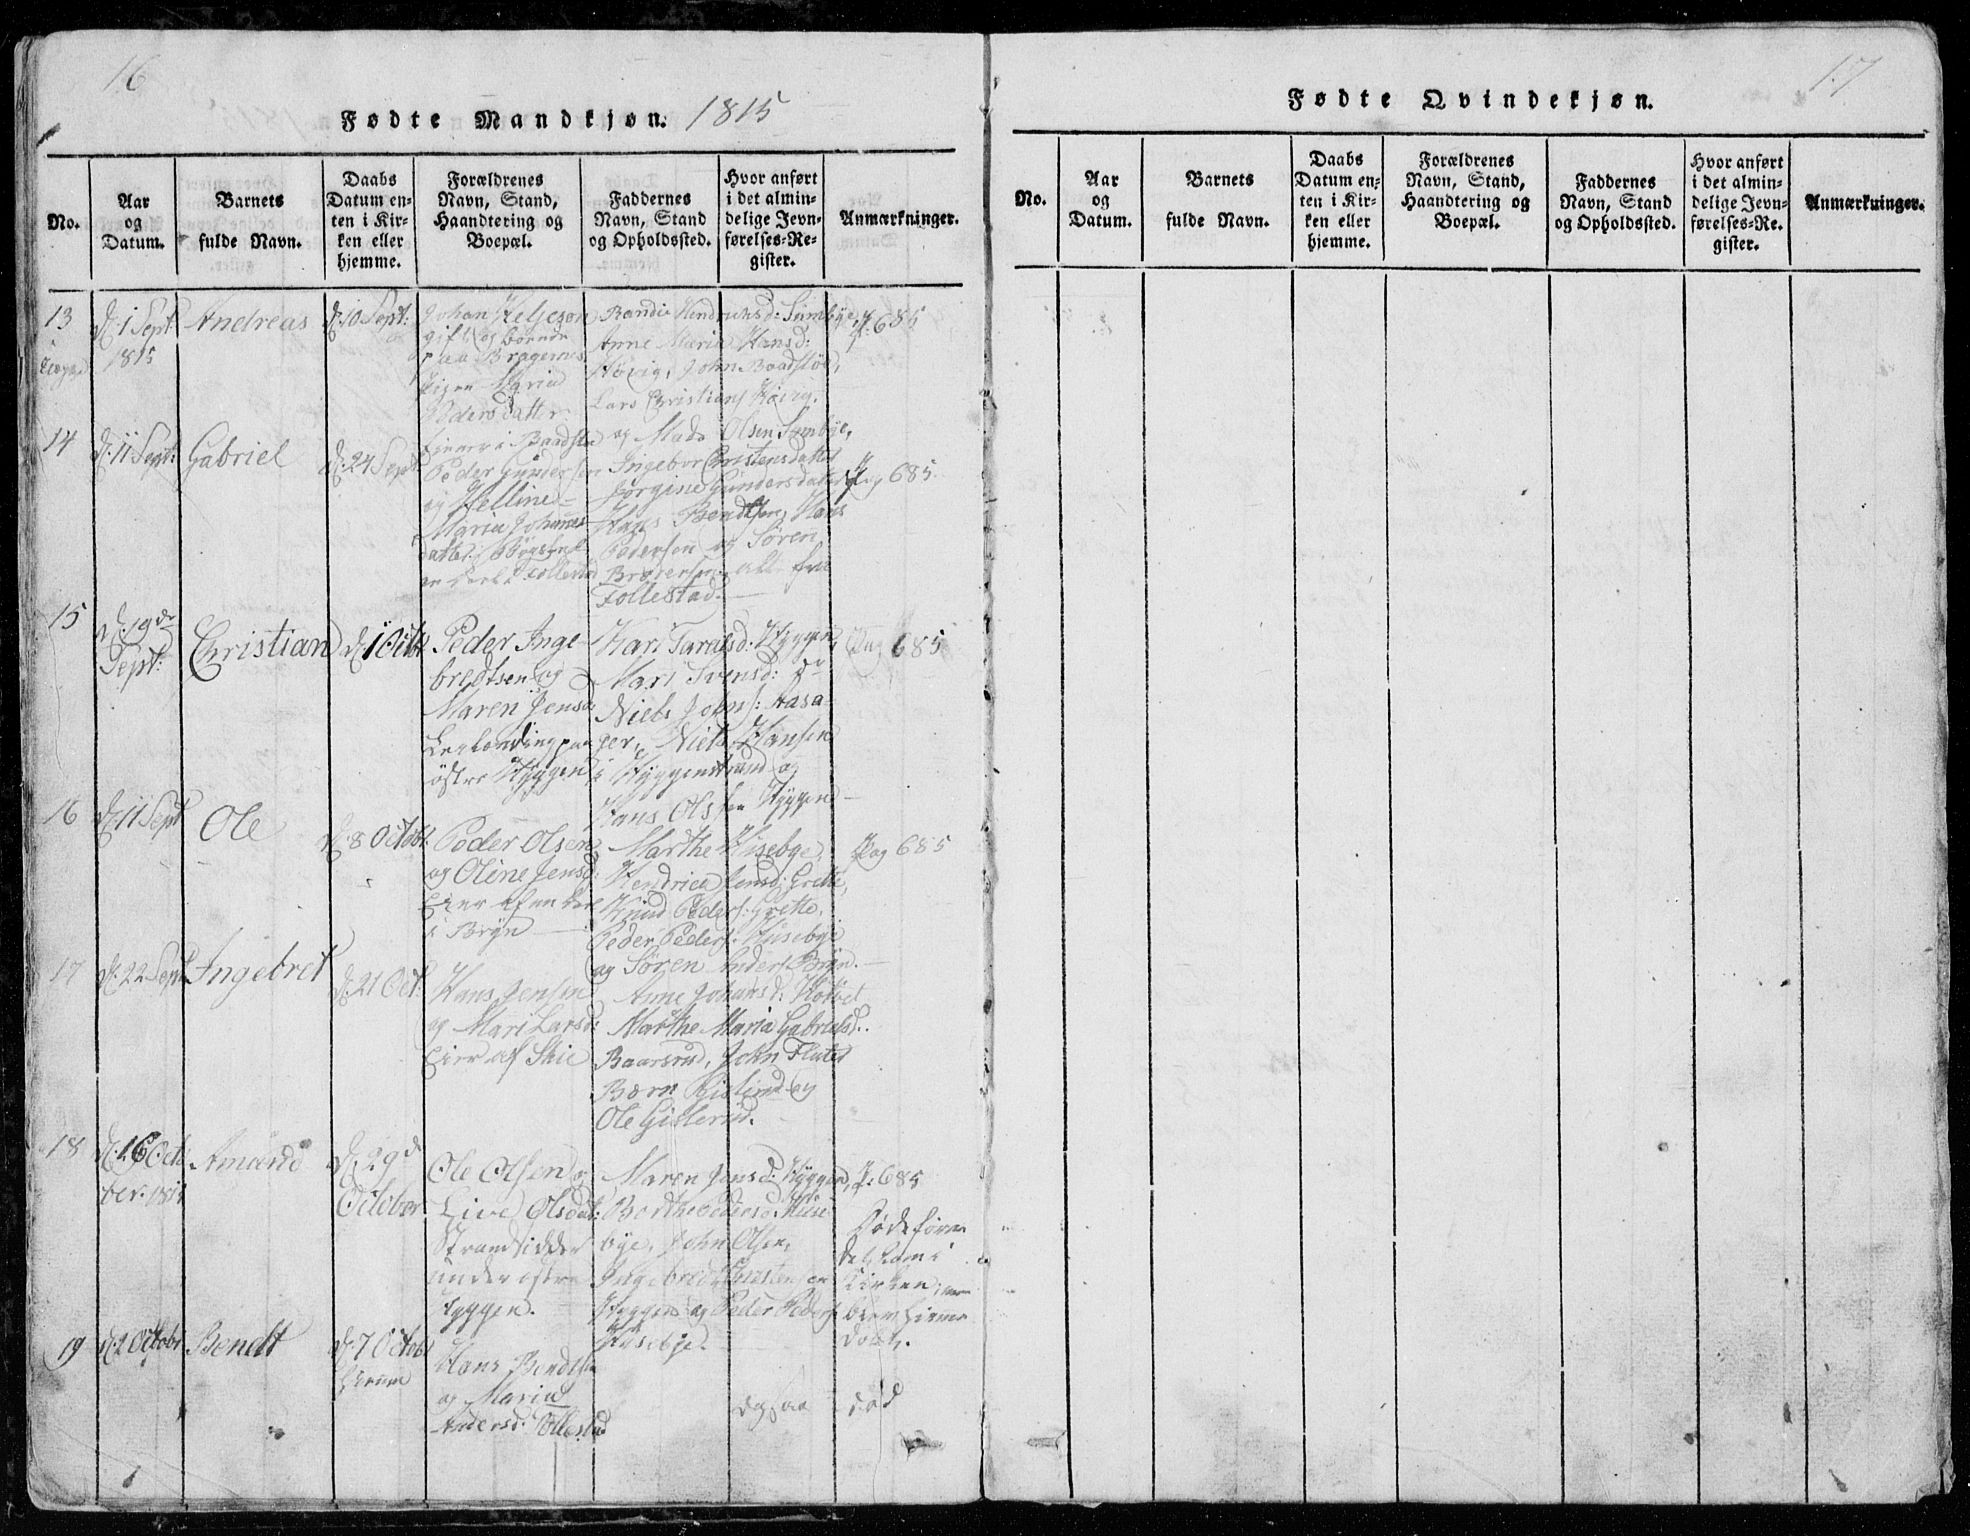 16
Fødte Mandkjøn. 1815
No.
Aar
og
Datum.
Barnets
fulde Navn.
Daabs
Datum en-
ten i Kir-
ken eller
hjemme.
Forældrenes
Navn, Stand,
Haandtering og
Boepæl.
Faddernes
Navn, Stand
og Opholdssted.
Hvor anført
i det almin-
delige Jevn-
førelses-Re-
gister.
Anmærkninger.
13
d: 1 Sept:
1815
Andreas
d: 10 Sept:
Johan Helgeson
gift og boende
paa Bragernes
Pigen Maria
Pedersdatter
Randie Hendrichsd: Sundbye,
Anne Maria Hansd:
Høvig, John Baadstøe,
Lars Christians Høvig.
og Mads Olsen Sundbye,
P. 685
14
d: 11 Sept:
Gabriel
d: 24 Sept
Peder Gundersen
og Helline
Maria Johannes
datter
Follestad
Ingebor Christensdatter
Jørgine Gundersdatter
Hans Bendtsen, Hans
Pedersen og Søren
alle fra
Follestad.
Pag 685.
15
d: 19de
Sept:
Christian
d: 1 Octb
Peder Inge-
bredtsen og
Maren Jensd:
Leilending paa
østre Hyggen
Kari Taralsd: Hyggen,
Mari Svensd: do
Niels Johns: Aasa-
ger, Niels Hansen
i Hyggenstrand og
Hans Olsen Hyggen
Pag 685
16
d: 11 Sept
Ole
d: 8 Octobr:
Peder Olsen
og Oline Jensd:
i Bryn
Marthe Husebye,
Hendrica Jensd: Grette,
Knud Peders: Grette,
Peder Peders: Husebye
og Søren Anders: Bryn.
Pag 685
17
d: 22 Sept
Ingebret
d: 21 Oct:
Hans Jensen
og Mari Larsd:
Eier af Skie
Anne Johansd:
Marthe Maria Gabrielsd:
Baarsrud, John
og
Ole Gislerud.
18
d: 16 Octo
ber. 1815
Amund
d: 29d
October
Ole Olsen og
Live Olsdat:
Strandsidder
under østre
Hyggen.
Maren Jensd: Hyggen,
Berthe Pedersd: Huse
bye, John Olsen,
Ingebredt Christensen
Hyggen og Peder Peders:
Husebye.
P. 685
Døde føren
det kom i
Kirken; men
blev hiemme
døbt.
19
d: 2 Octobr
Bendt
d: 7 Octobr
hiemme
Hans Bendtsen
og Maria
Andersd: Follestad
død
17
Fødte Qvindekjøn.
No.
Aar
og
Datum.
Barnets
fulde Navn.
Daabs
Datum en-
ten i Kir-
ken eller
hjemme.
Forældrenes
Navn, Stand,
Haandtering og
Boepæl.
Faddernes
Navn, Stand
og Opholdssted.
Hvor anført
i det almin-
delige Jevn-
førelses-Re-
gister.
Anmærkninger.